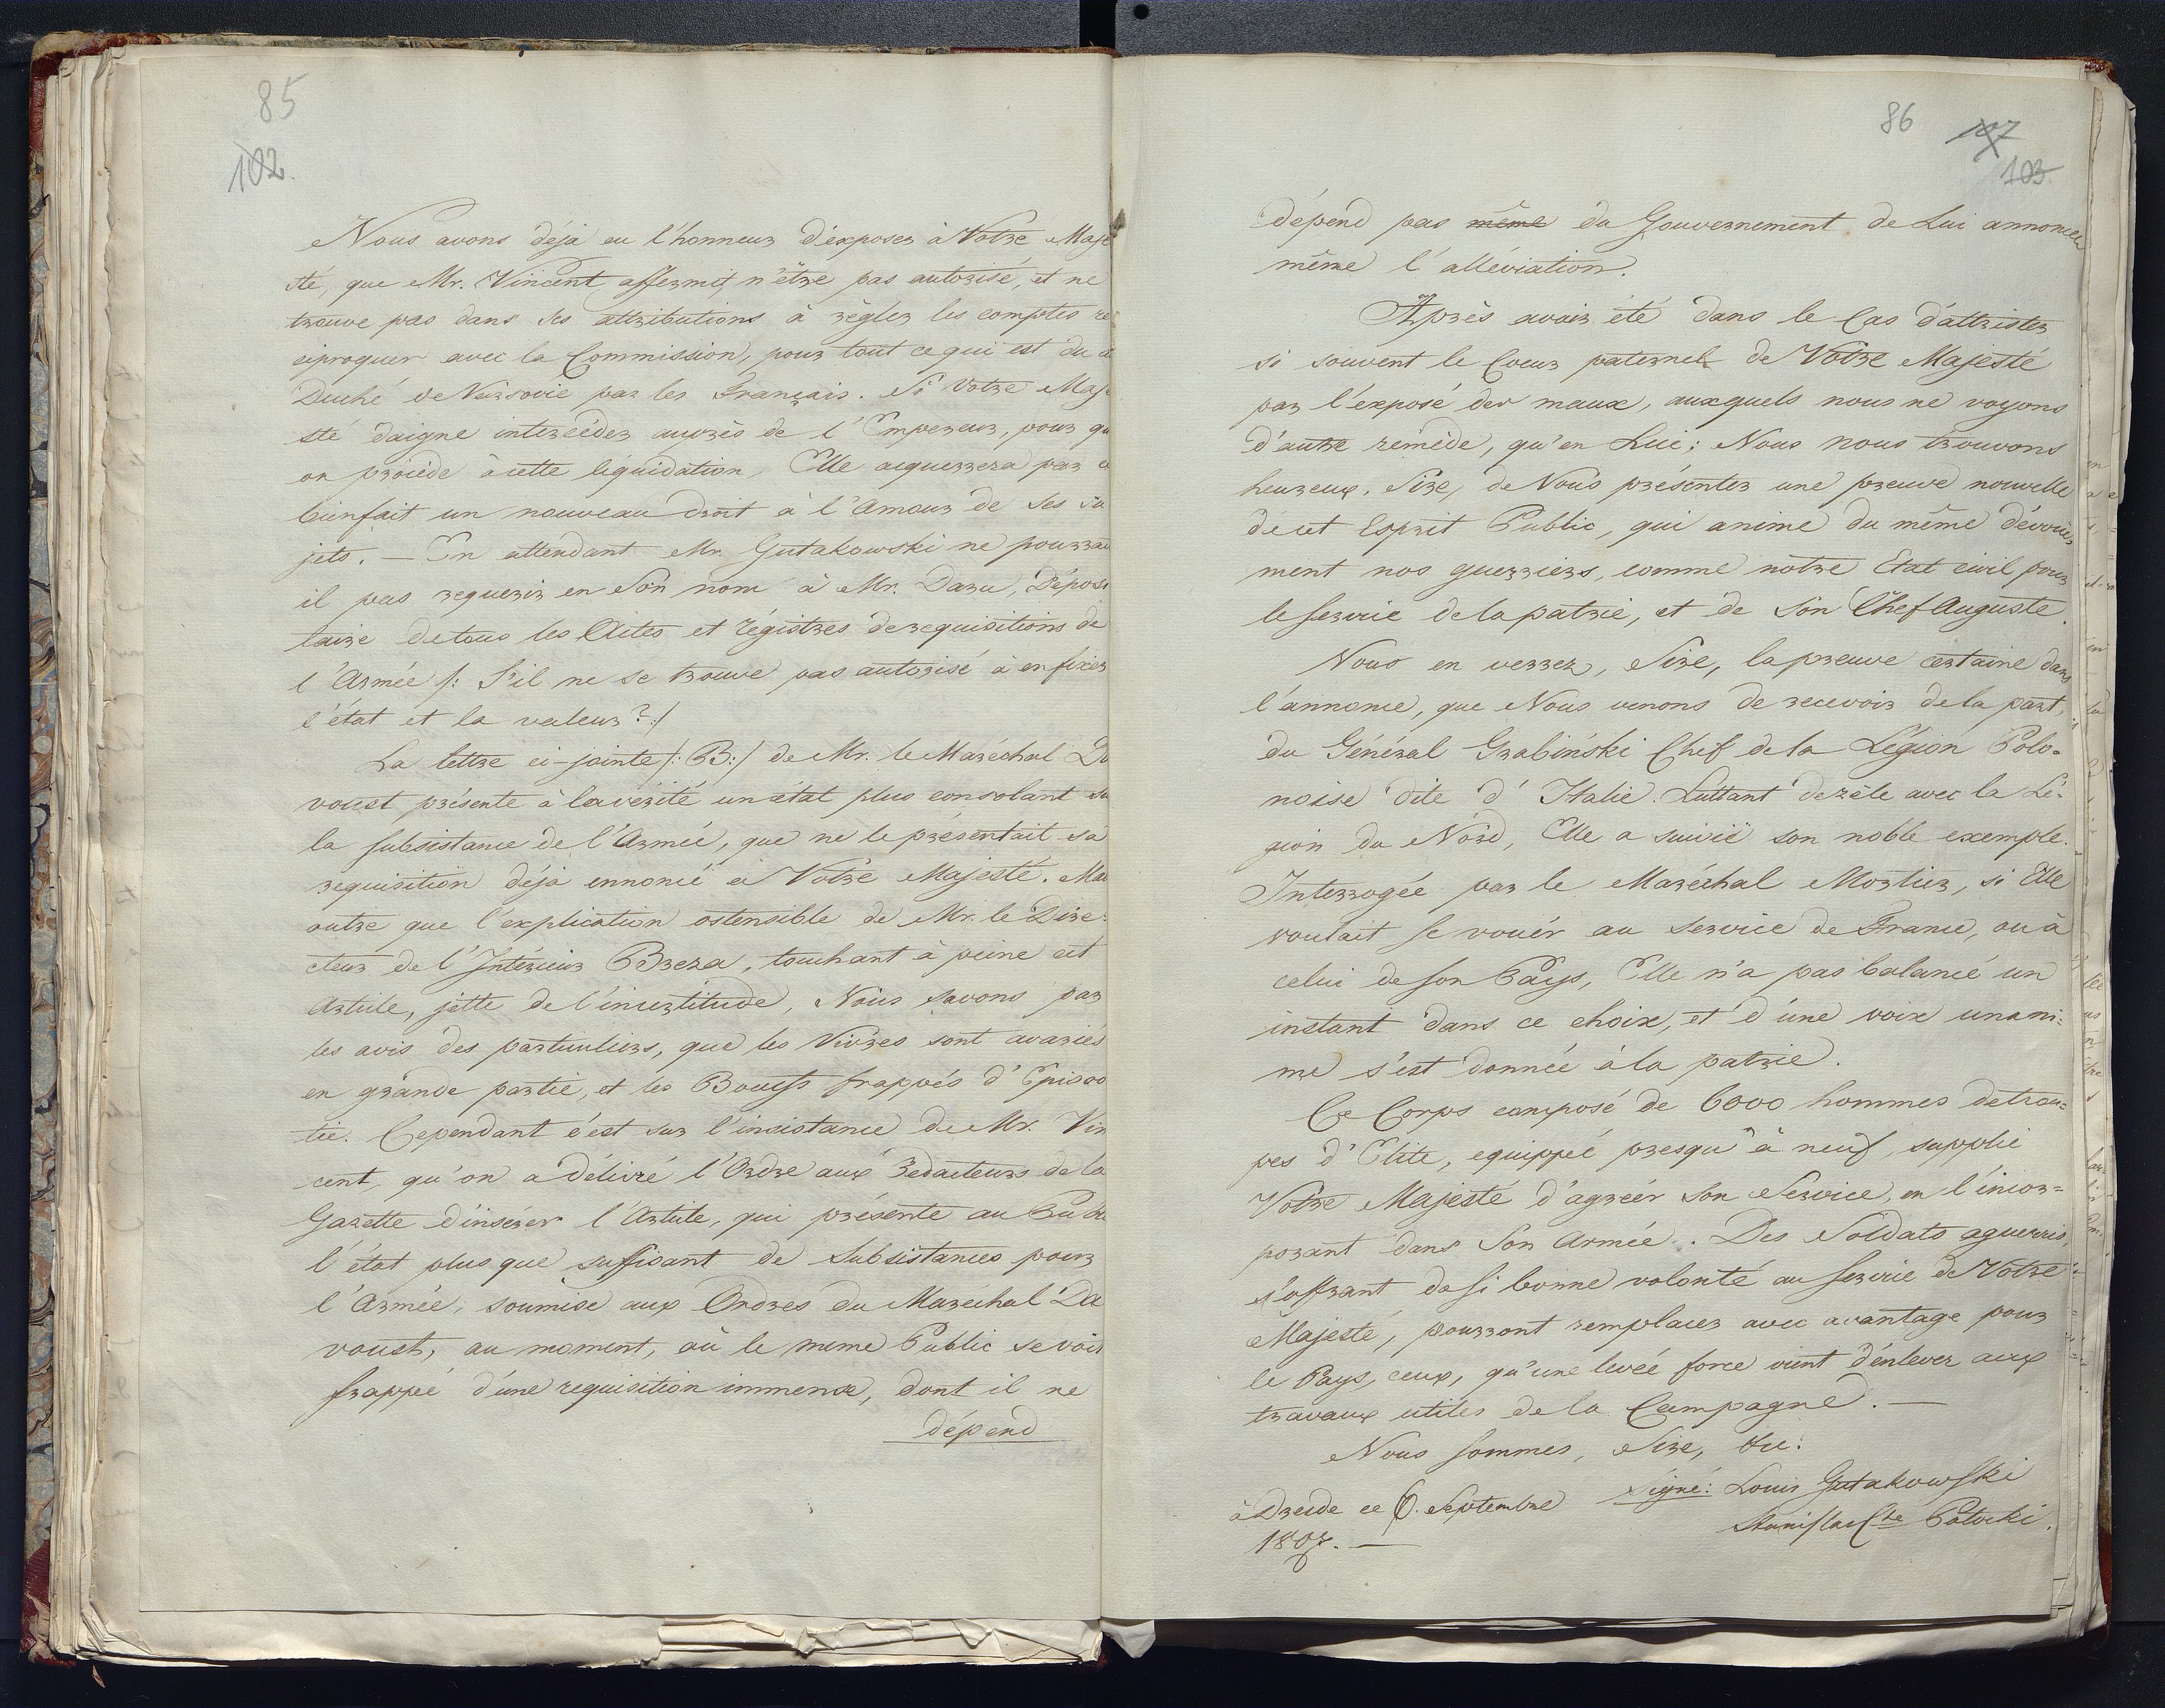 85
102.
Nous avons déjà eu l'honneur d'exposer à Votre Maje
sté, que Mr. Vincent affermit n'être pas autorisé, et ne
trouve pas dans ses attributions à règler les comptes re
ciproquer avec la Commission, pour tout ce qui est du a
Duché de Varsovie par les Français. Si Votre Maje
sté daigne intercéder auprès de l'Empereur, pour qu
on procède à cette liquidation, Elle acquerrera par c
bienfait un nouveau droit à l'Amour de Ses Su
jets. — En attendant Mr. Gutakowski ne pourrait
il pas requerir en Son nom à Mr. Daru, Déposi
taire de tous les Actes et régistres de requisitions de
l'Armée /: S'il ne se trouve pas autorisé à en fixer
l'état et la valeur? :/
La lettre ci-jointe /: B: / de Mr. le Maréchal Da
voust présente à la vérité un état plus consolant su
la subsistance de l'Armée, que ne le présentait sa
requisition déjà ennoncé à Votre Majesté. Mai
outre que l'explication ostensible de Mr. le Dire-
cteur de l'Intérieur Breza, touchant à peine cet
Article, jette de l'incertitude, Nous savons par
les avis des particuliers, que les Vivres sont avariés
en grande partie, et les Boeufs frappés d'Episoo
tie. Cependant c'est sur l'insistance de Mr. Vin
cent, qu'on a délivré l'Ordre aux Redacteurs de la
Gazette d'insérer l'Article, qui présente au Publi
l'état plus que suffisant de Subsistances pour
l'Armée, soumise aux Ordres du Maréchal Da
voust, au moment, où le meme Public se voit
frappé d'une requisition immense, dont il ne
dépend
86
107
103.
dépend pas même du Gouvernement de Lui annoncer
même l'alléviation.
Après avoir été dans le Cas d'attrister
si souvent le Coeur paternel de Votre Majesté
par l'exposé des maux, auxquels nous ne voyons
d'autre remède, qu'en Lui: Nous nous trouvons
heureux, Sire, de Vous présenter une preuve nouvelle
de cet Esprit Public, qui anime du même dévoue
ment nos guerriers, comme notre Etat civil pour
le Service de la patrie, et de Son Chef Auguste.
Vous en verrez, Sire, la preuve certaine dans
l'annonce, que Nous venons de recevoir de la part,
du Général Grabiński Chef de la Légion Polo-
noise dite d'Italie. Luttant de zèle avec la Lé-
gion du Nord, Elle a suivie son noble exemple.
Interrogée par le Maréchal Mortier, si Elle
voulait se vouér au Service de France, ou à
celui de son Pays, Elle n'a pas balancé un
instant dans ce choix, et d'une voix unani-
me s'est donnée à la patrie.
Ce Corps composé de 6000 hommes de trou-
pes d'Elite, equippée presqu'à neuf, supplie
Votre Majesté d'agréér son Service, en l'incor-
porant dans Son Armée. Des Soldats aguerris,
s'offrant de si bonne volonté au Service de Votre
Majesté, pourront remplacer avec avantage pour
le Pays, ceux, qu'une levée force vient d'énlever aux
travaux utiles de la Campagne. —
Nous sommes, Sire, &c:
signé: Louis Gutakowski
à Dresde ce 6. Septembre
Stanislas Cte Potocki.
1807. —